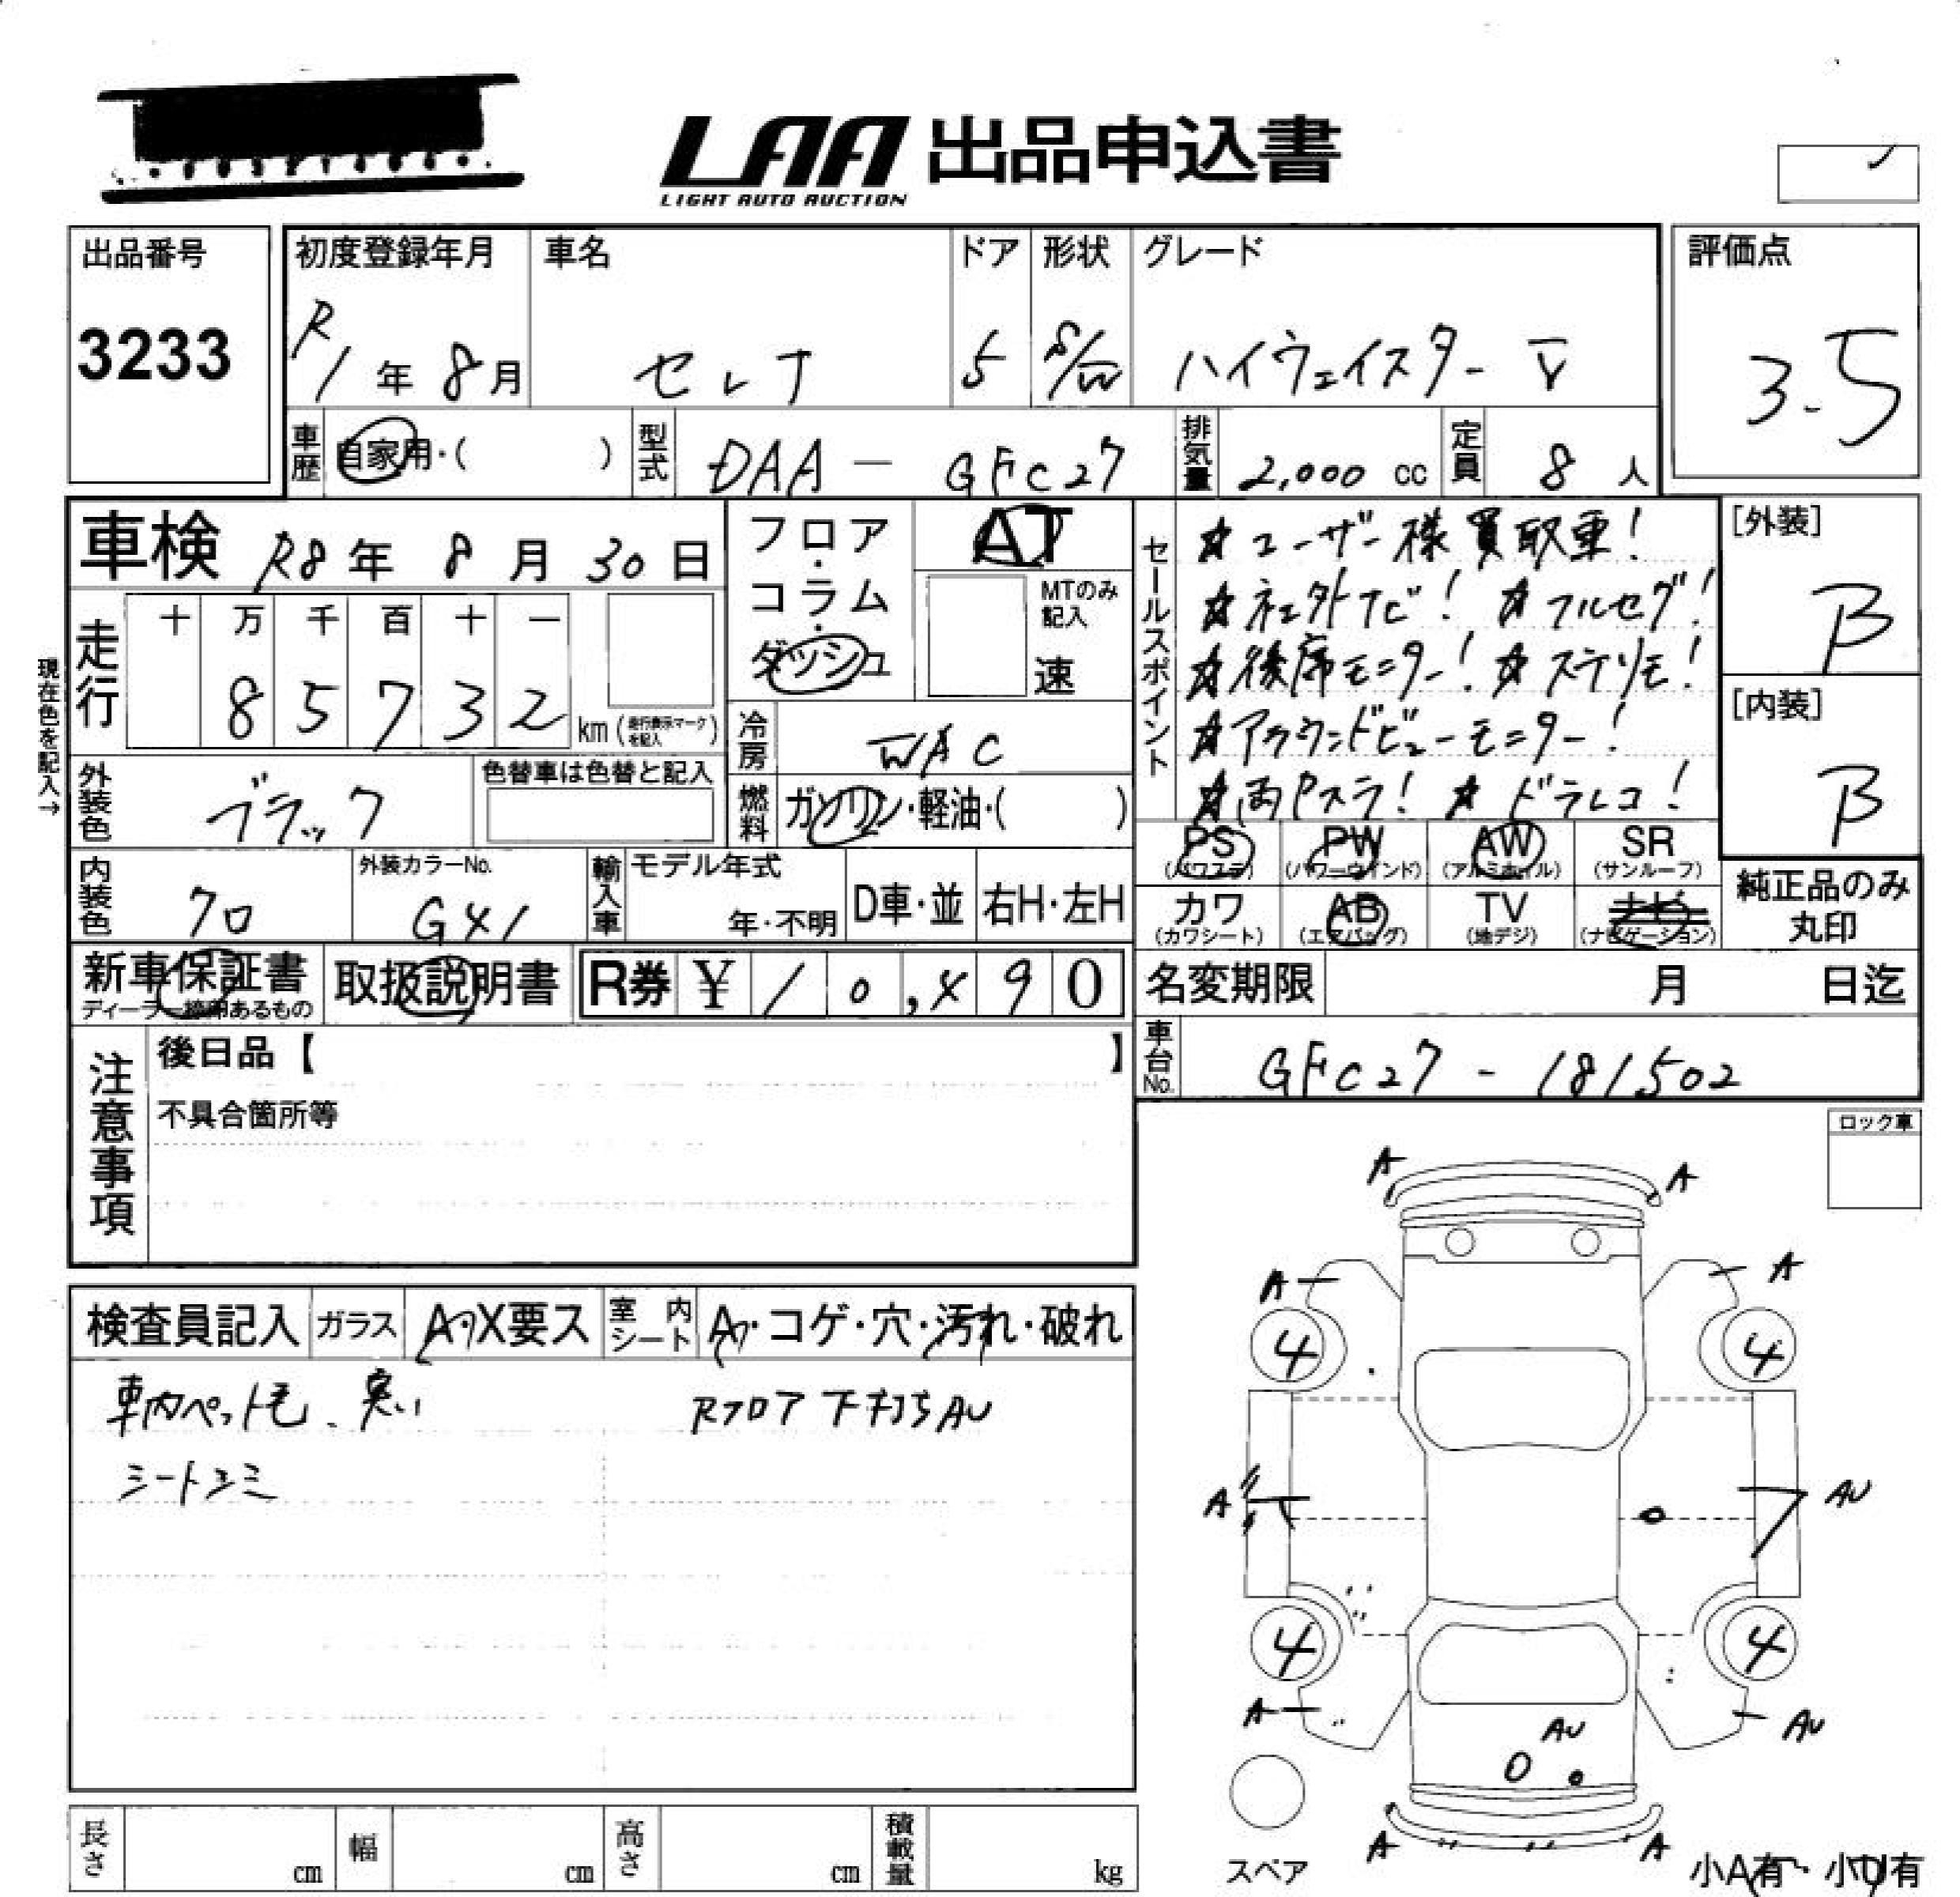 LAA 出品申込書
LIGHT AUTO AUCTION
出品番号
3233
初度登録年月
R1年 8月
車名
セレナ
ドア
5
形状
S/W
グレード
ハイウェイスター V
評価点
3.5
車歴
自家用・( )
型式
DAA - GFC27
排気量
2,000 cc
定員
8 人
車検 R8年 8月 30日
フロア・コラム・ダッシュ
AT
MTのみ記入
速
走行
十 万 千 百 十 一
8 5 7 3 2
km(走行表示マークを記入)
現在色を記入→
外装色
ブラック
色替車は色替と記入
冷房
WAC
燃料
ガソリン・軽油・( )
内装色
クロ
外装カラーNo.
G41
輸入車
モデル年式
年・不明
D車・並
右H・左H
セールスポイント
☆ユーザー様買取車!
☆社外ナビ! ☆フルセグ!
☆後席モニター! ☆ステリモ!
☆アラウンドビューモニター!
☆両Pスラ! ☆ドラレコ!
[外装]
B
[内装]
B
PS (パワステ)
PW (パワーウインド)
AW (アルミホイル)
SR (サンルーフ)
カワ (カワシート)
AB (エアバッグ)
TV (地デジ)
ナビ (ナビゲーション)
純正品のみ丸印
新車保証書
ディーラー捺印あるもの
取扱説明書
R券 ¥ 10,490
名変期限 月 日迄
車台No.
GFC27 - 181502
注意事項
後日品【 】
不具合箇所等
ロック車
検査員記入
ガラス
A・X要ス
室内シート
A・コゲ・穴・汚れ・破れ
車内ペット毛、臭い
シートシミ
Rフロア下打ちAU
A
A
A
A
4
4
A
AU
4
4
A
AU
AU
A
A
スペア
小A有・小U有
長さ cm
幅 cm
高さ cm
積載量 kg